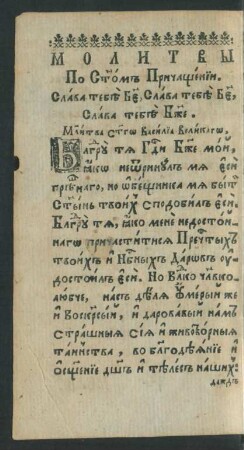 МОЛИТВЫ
По Ст҃омъ Причащенїи.
Сла́ва тебѣ̀ Бж҃е, Сла́ва тебѣ̀ Бж҃е,
Сла́ва тебѣ̀ Бж҃е.
Мл҃и́тва ст҃гѡ Васи́лїа Вели́кагѡ.
Бл҃года́рю тѧ̀ Гдⷭ҇и Бж҃е мо́й,
ꙗ҆́кѡ не ѿри́нулъ мѧ̀ є҆сѝ
грѣ́шнаго, но ѻ҆́бщника мѧ̀ бы́ти
ст҃ы́нь твои́хъ сподо́билъ є҆сѝ.
Бл҃годарю̀ тѧ̀, ꙗ҆́кѡ менѐ недосто́й-
нагѡ причасти́тисѧ Пречⷭ҇тыхъ
твои́хъ и҆ Нбⷭ҇ныхъ Дарѡ́въ оу҆-
досто́илъ є҆сѝ. Но Влⷣко чл҃вѣко-
лю́бче, на́съ дѣ́лѧ оу҆ме́рый же
и҆ Воскр҃сы́й, и҆ дарова́вый на́мъ
стра́шныѧ сїѧ̑ и҆ животво́рныѧ
та́инства, во бл҃годѣѧ́нїе и҆
ѡ҆сщ҃е́нїе дш҃ъ и҆ тѣле́съ на́шихъ:
да́ждь